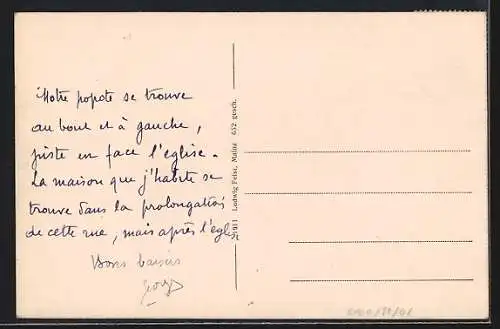 Notre popote se trouve
au bout et à gauche,
juste en face l'église.
La maison que j'habite se
trouve dans la prolongation
de cette rue, mais après l'église
Bons baisers
Ludwig Feist, Mainz 652 gesch.